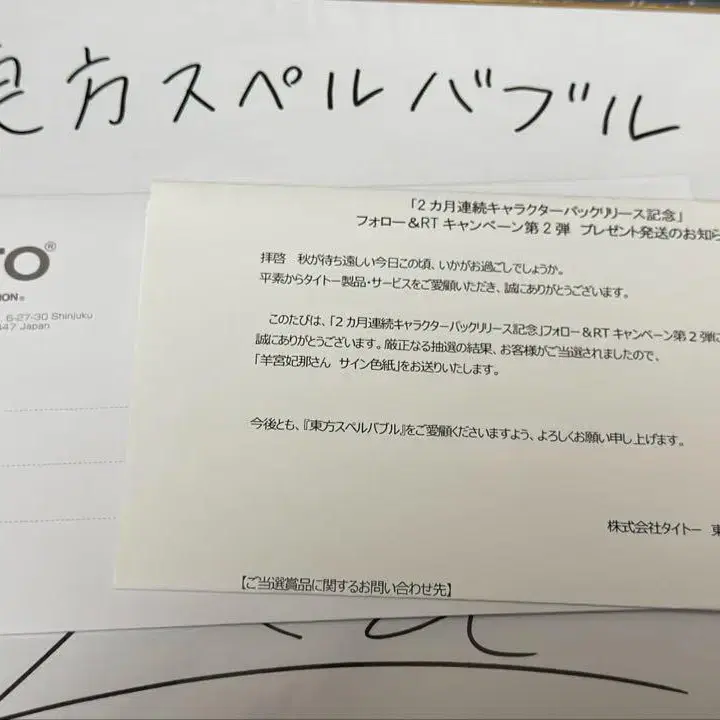 東方スペルバブル
TO®
ION®
6-27-30 Shinjuku
347 Japan
「2カ月連続キャラクターパックリリース記念」
フォロー&RTキャンペーン第2弾 プレゼント発送のお知ら
拝啓 秋が待ち遠しい今日この頃、いかがお過ごしでしょうか。
平素からタイトー製品・サービスをご愛顧いただき、誠にありがとうございます。
このたびは、「2カ月連続キャラクターパックリリース記念」フォロー&RTキャンペーン第2弾に
誠にありがとうございます。厳正なる抽選の結果、お客様がご当選されましたので、
「羊宮妃那さん サイン色紙」をお送りいたします。
今後とも、『東方スペルバブル』をご愛顧くださいますよう、よろしくお願い申し上げます。
株式会社タイトー 東
【ご当選賞品に関するお問い合わせ先】